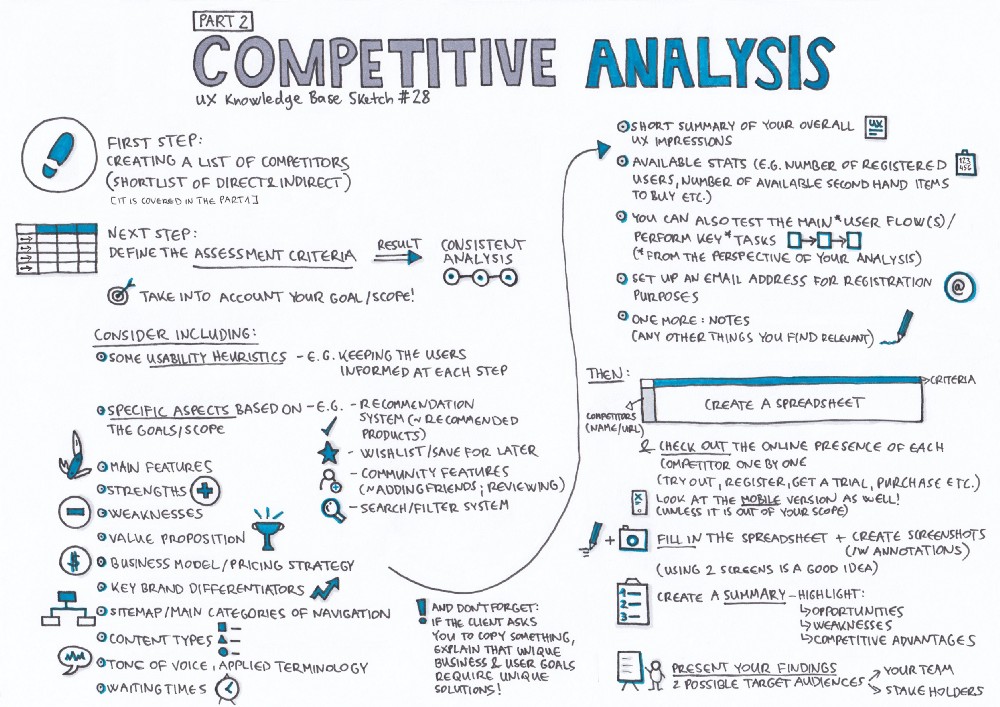 PART 2
COMPETITIVE ANALYSIS
UX Knowledge Base Sketch #28
FIRST STEP:
CREATING A LIST OF COMPETITORS
(SHORTLIST OF DIRECT & INDIRECT)
[IT IS COVERED IN THE PART 1]
NEXT STEP:
DEFINE THE ASSESSMENT CRITERIA
RESULT
CONSISTENT
ANALYSIS
TAKE INTO ACCOUNT YOUR GOAL/SCOPE!
CONSIDER INCLUDING:
SOME USABILITY HEURISTICS - E.G. KEEPING THE USERS
INFORMED AT EACH STEP
SPECIFIC ASPECTS BASED ON
THE GOALS/SCOPE
- E.G. - RECOMMENDATION
SYSTEM (~ RECOMMENDED
PRODUCTS)
- WISHLIST/SAVE FOR LATER
- COMMUNITY FEATURES
(~ADDING FRIENDS; REVIEWING)
- SEARCH/FILTER SYSTEM
MAIN FEATURES
STRENGTHS
WEAKNESSES
VALUE PROPOSITION
$
BUSINESS MODEL/PRICING STRATEGY
KEY BRAND DIFFERENTIATORS
SITEMAP/MAIN CATEGORIES OF NAVIGATION
CONTENT TYPES
TONE OF VOICE, APPLIED TERMINOLOGY
WAITING TIMES
! AND DON'T FORGET:
IF THE CLIENT ASKS
YOU TO COPY SOMETHING,
EXPLAIN THAT UNIQUE
BUSINESS & USER GOALS
REQUIRE UNIQUE
SOLUTIONS!
SHORT SUMMARY OF YOUR OVERALL
UX IMPRESSIONS
UX
AVAILABLE STATS (E.G. NUMBER OF REGISTERED
USERS, NUMBER OF AVAILABLE SECOND HAND ITEMS
TO BUY ETC.)
123
456
YOU CAN ALSO TEST THE MAIN* USER FLOW(S)/
PERFORM KEY* TASKS
(*FROM THE PERSPECTIVE OF YOUR ANALYSIS)
SET UP AN EMAIL ADDRESS FOR REGISTRATION
PURPOSES
@
ONE MORE: NOTES
(ANY OTHER THINGS YOU FIND RELEVANT)
THEN:
CRITERIA
CREATE A SPREADSHEET
COMPETITORS
(NAME/URL)
& CHECK OUT THE ONLINE PRESENCE OF EACH
COMPETITOR ONE BY ONE
(TRY OUT, REGISTER, GET A TRIAL, PURCHASE ETC.)
LOOK AT THE MOBILE VERSION AS WELL!
(UNLESS IT IS OUT OF YOUR SCOPE)
+
FILL IN THE SPREADSHEET + CREATE SCREENSHOTS
(/W ANNOTATIONS)
(USING 2 SCREENS IS A GOOD IDEA)
1
2
3
CREATE A SUMMARY - HIGHLIGHT:
OPPORTUNITIES
WEAKNESSES
COMPETITIVE ADVANTAGES
PRESENT YOUR FINDINGS
2 POSSIBLE TARGET AUDIENCES
YOUR TEAM
STAKEHOLDERS